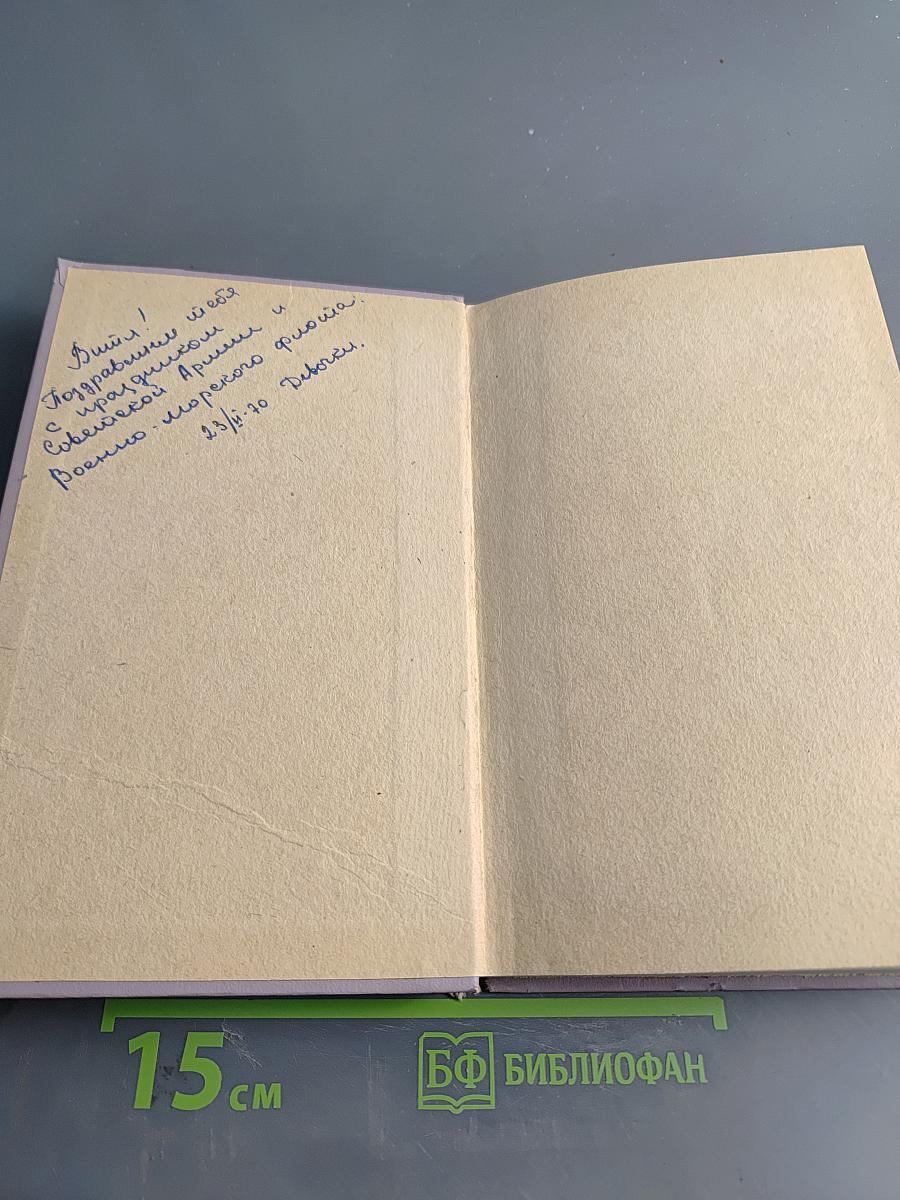 Витя!
Поздравляем тебя
с праздником
Советской Армии и
Военно-Морского флота.
23/II-70 Девочки.
15 см
БФ БИБЛИОФАН